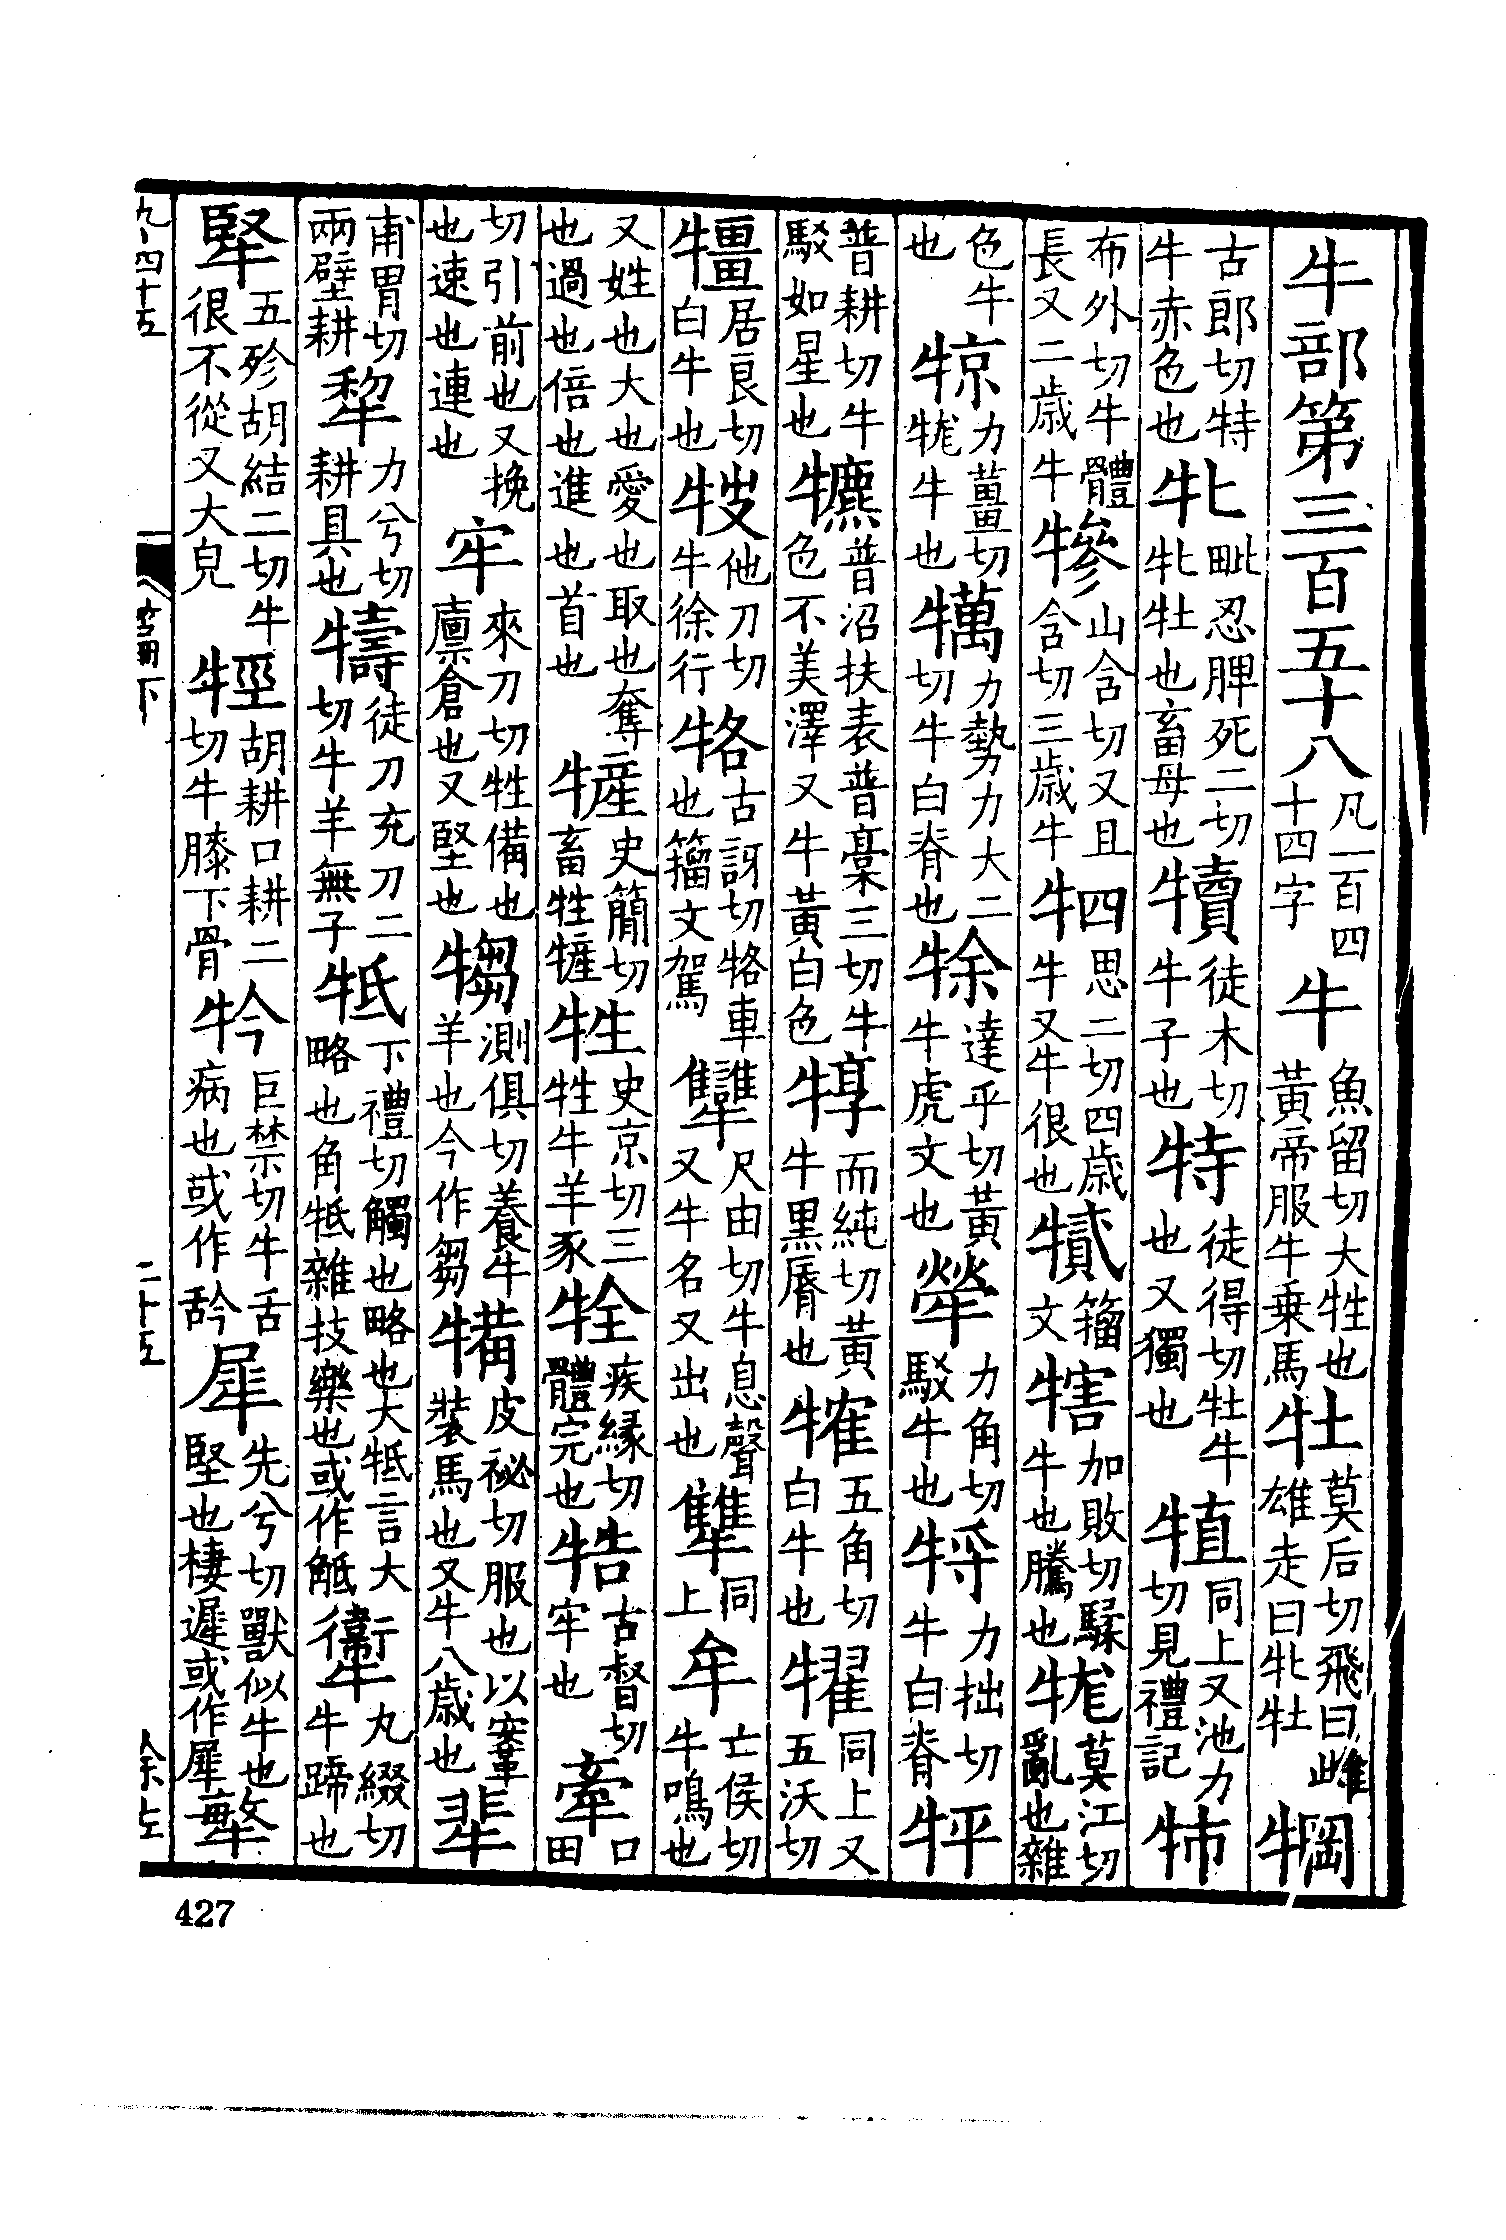 牛部第三百五十八凡一百四十四字牛魚留切大牲也黃帝服牛乗馬牡莫后切飛曰雌雄走曰牝牡犅
古郎切特牛赤色也牝毗忍脾死二切牝牡也畜母也犢徒木切牛子也特徒得切牡牛也又獨也犆同上又池力切見禮記㸬
布外切牛體長又二歳牛犙山含切又且含切三歳牛牭思二切四歳牛又牛很也籀文犗加敗切騬牛也騰也牻莫江切亂也雜
色牛也㹁力薑切牻牛也犡力勢力大二切牛白脊也㸿達乎切黃牛虎文也犖力角切駁牛也㸹力拙切牛白脊𤘾
普耕切牛駁如星也犥普沼扶表普橐三切牛色不美澤又牛黃白色犉而純切黃牛黒脣也㹊五角切白牛也同上又五沃切
居良切白牛也𤘸他刀切牛徐行古訝切車也籀文駕犫尺由切牛息聲又牛名又出也犨同上牟亡侯切牛鳴也
又姓也大也愛也取也奪也過也倍也進也首也㹌史簡切畜牲㹌牲史京切三牲牛羊豕牷疾縁切體完也牿古督切牢也牽口田
切引前也又挽也速也連也牢來刀切牲備也廪倉也又堅也犓測俱切養牛羊也今作芻犕皮祕切服也以鞌裝馬也又牛八歳也𤙂
甫胃切兩壁耕犂力兮切耕具也𤛾徒刀充刀二切牛羊無子牴下禮切觸也略也大牴言大略也角牴雜技樂也或作觝𤜂丸綴切牛蹄也
㹂五殄胡結二切牛很不從又大皃牼胡耕口耕二切牛膝下骨㸧巨禁切牛舌病也或作䑤犀先兮切獸似牛也堅也棲遲或作犀
九四十五
篇下
二十五
427